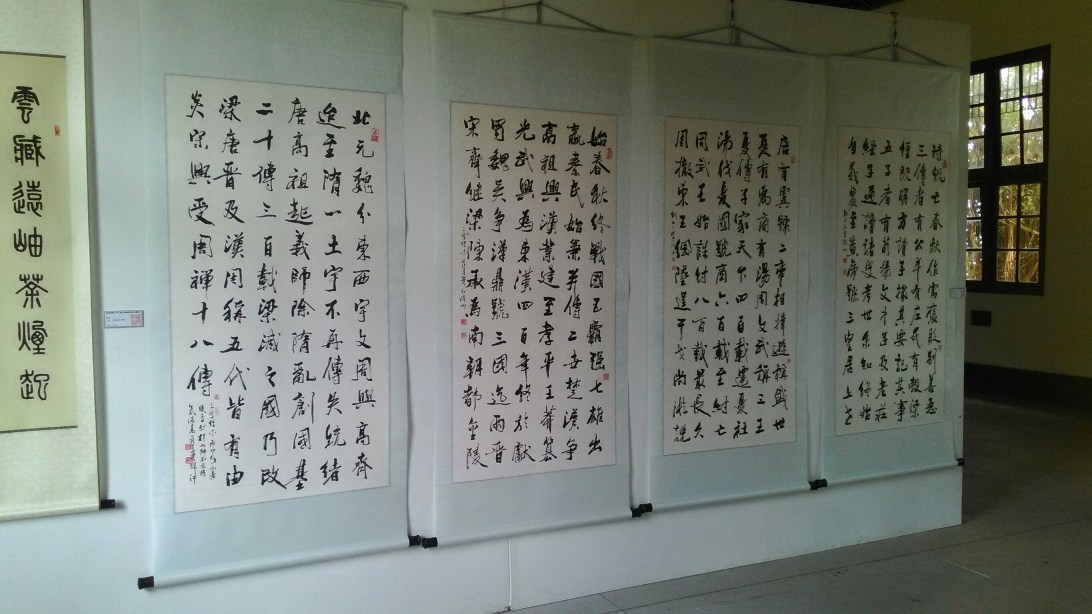 詩既亡春秋作寓褒貶別善惡
三傳者有公羊有左氏有穀梁
經既明方讀子撮其要記其事
五子者有荀揚文中子及老莊
經子通讀諸史考世系知終始
自羲農至黃帝號三皇居上世
唐有虞號二帝相揖遜稱盛世
夏有禹商有湯周文武稱三王
夏傳子家天下四百載遷夏社
湯伐夏國號商六百載至紂亡
周武王始誅紂八百載最長久
周轍東王綱墜逞干戈尚游說
始春秋終戰國五霸强七雄出
嬴秦氏始兼并傳二世楚漢爭
高祖興漢業建至孝平王莽篡
光武興為東漢四百年終於獻
蜀魏吳爭漢鼎號三國迄兩晉
宋齊繼梁陳承為南朝都金陵
北元魏分東西宇文周與高齊
迨至隋一土宇不再傳失統緒
唐高祖起義師除隋亂創國基
二十傳三百載梁滅之國乃改
梁唐晉及漢周稱五代皆有由
炎宋興受周禪十八傳
雲藏遠岫茶煙起